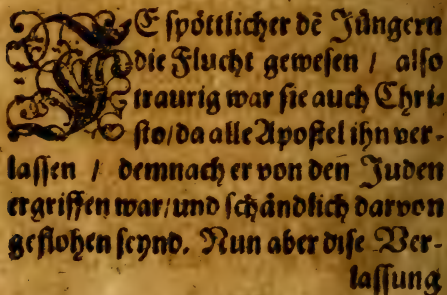 JE spöttlicher dẽ Jüngern
die Flucht gewesen / also
traurig war sie auch Chri-
sto/da alle Apostel ihn ver-
lassen / demnach er von den Juden
ergriffen war/und schändlich darvon
geflohen seynd. Nun aber dise Ver-
lassung